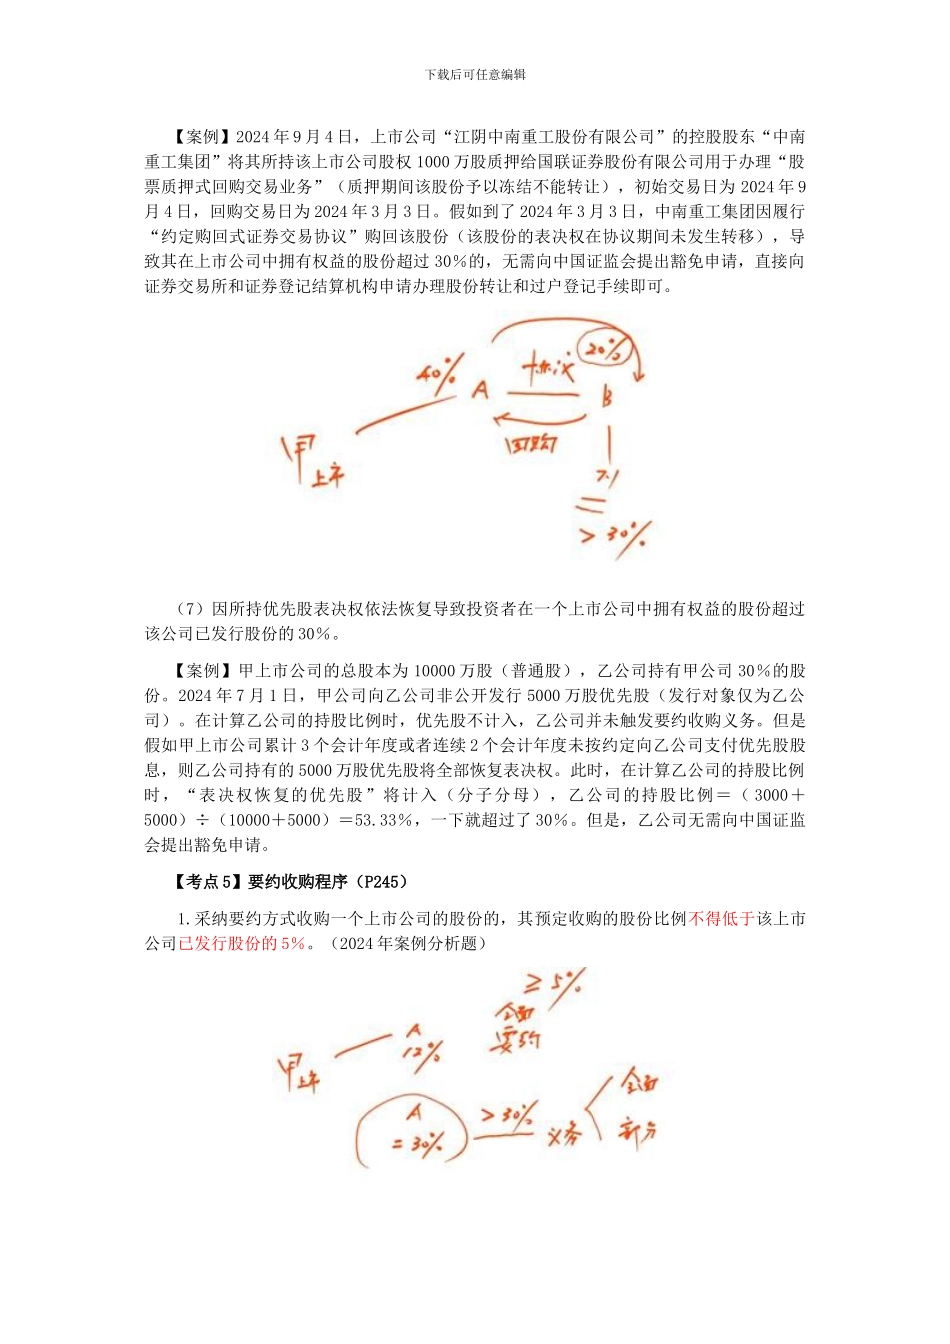 下载后可任意编辑
【案例】2024 年 9 月 4 日，上市公司“江阴中南重工股份有限公司”的控股股东“中南
重工集团”将其所持该上市公司股权 1000 万股质押给国联证券股份有限公司用于办理“股
票质押式回购交易业务”（质押期间该股份予以冻结不能转让），初始交易日为 2024 年 9
月 4 日，回购交易日为 2024 年 3 月 3 日。假如到了 2024 年 3 月 3 日，中南重工集团因履行
“约定购回式证券交易协议”购回该股份（该股份的表决权在协议期间未发生转移），导
致其在上市公司中拥有权益的股份超过 30％的，无需向中国证监会提出豁免申请，直接向
证券交易所和证券登记结算机构申请办理股份转让和过户登记手续即可。
40% A 20% B
回购
甲上市
> 30%
（7）因所持优先股表决权依法恢复导致投资者在一个上市公司中拥有权益的股份超过
该公司已发行股份的 30％。
【案例】甲上市公司的总股本为 10000 万股（普通股），乙公司持有甲公司 30％的股
份。2024 年 7 月 1 日，甲公司向乙公司非公开发行 5000 万股优先股（发行对象仅为乙公
司）。在计算乙公司的持股比例时，优先股不计入，乙公司并未触发要约收购义务。但是
假如甲上市公司累计 3 个会计年度或者连续 2 个会计年度未按约定向乙公司支付优先股股
息，则乙公司持有的 5000 万股优先股将全部恢复表决权。此时，在计算乙公司的持股比例
时，“表决权恢复的优先股”将计入（分子分母），乙公司的持股比例＝（3000＋
5000）÷（10000＋5000）＝53.33％，一下就超过了 30％。但是，乙公司无需向中国证监
会提出豁免申请。
【考点 5】要约收购程序（P245）
1.采纳要约方式收购一个上市公司的股份的，其预定收购的股份比例不得低于该上市
公司已发行股份的 5％。（2024 年案例分析题）
≥ 5%
全面
要约
A
12%
甲上市
A
= 30%
> 30%
义务
全面
部分